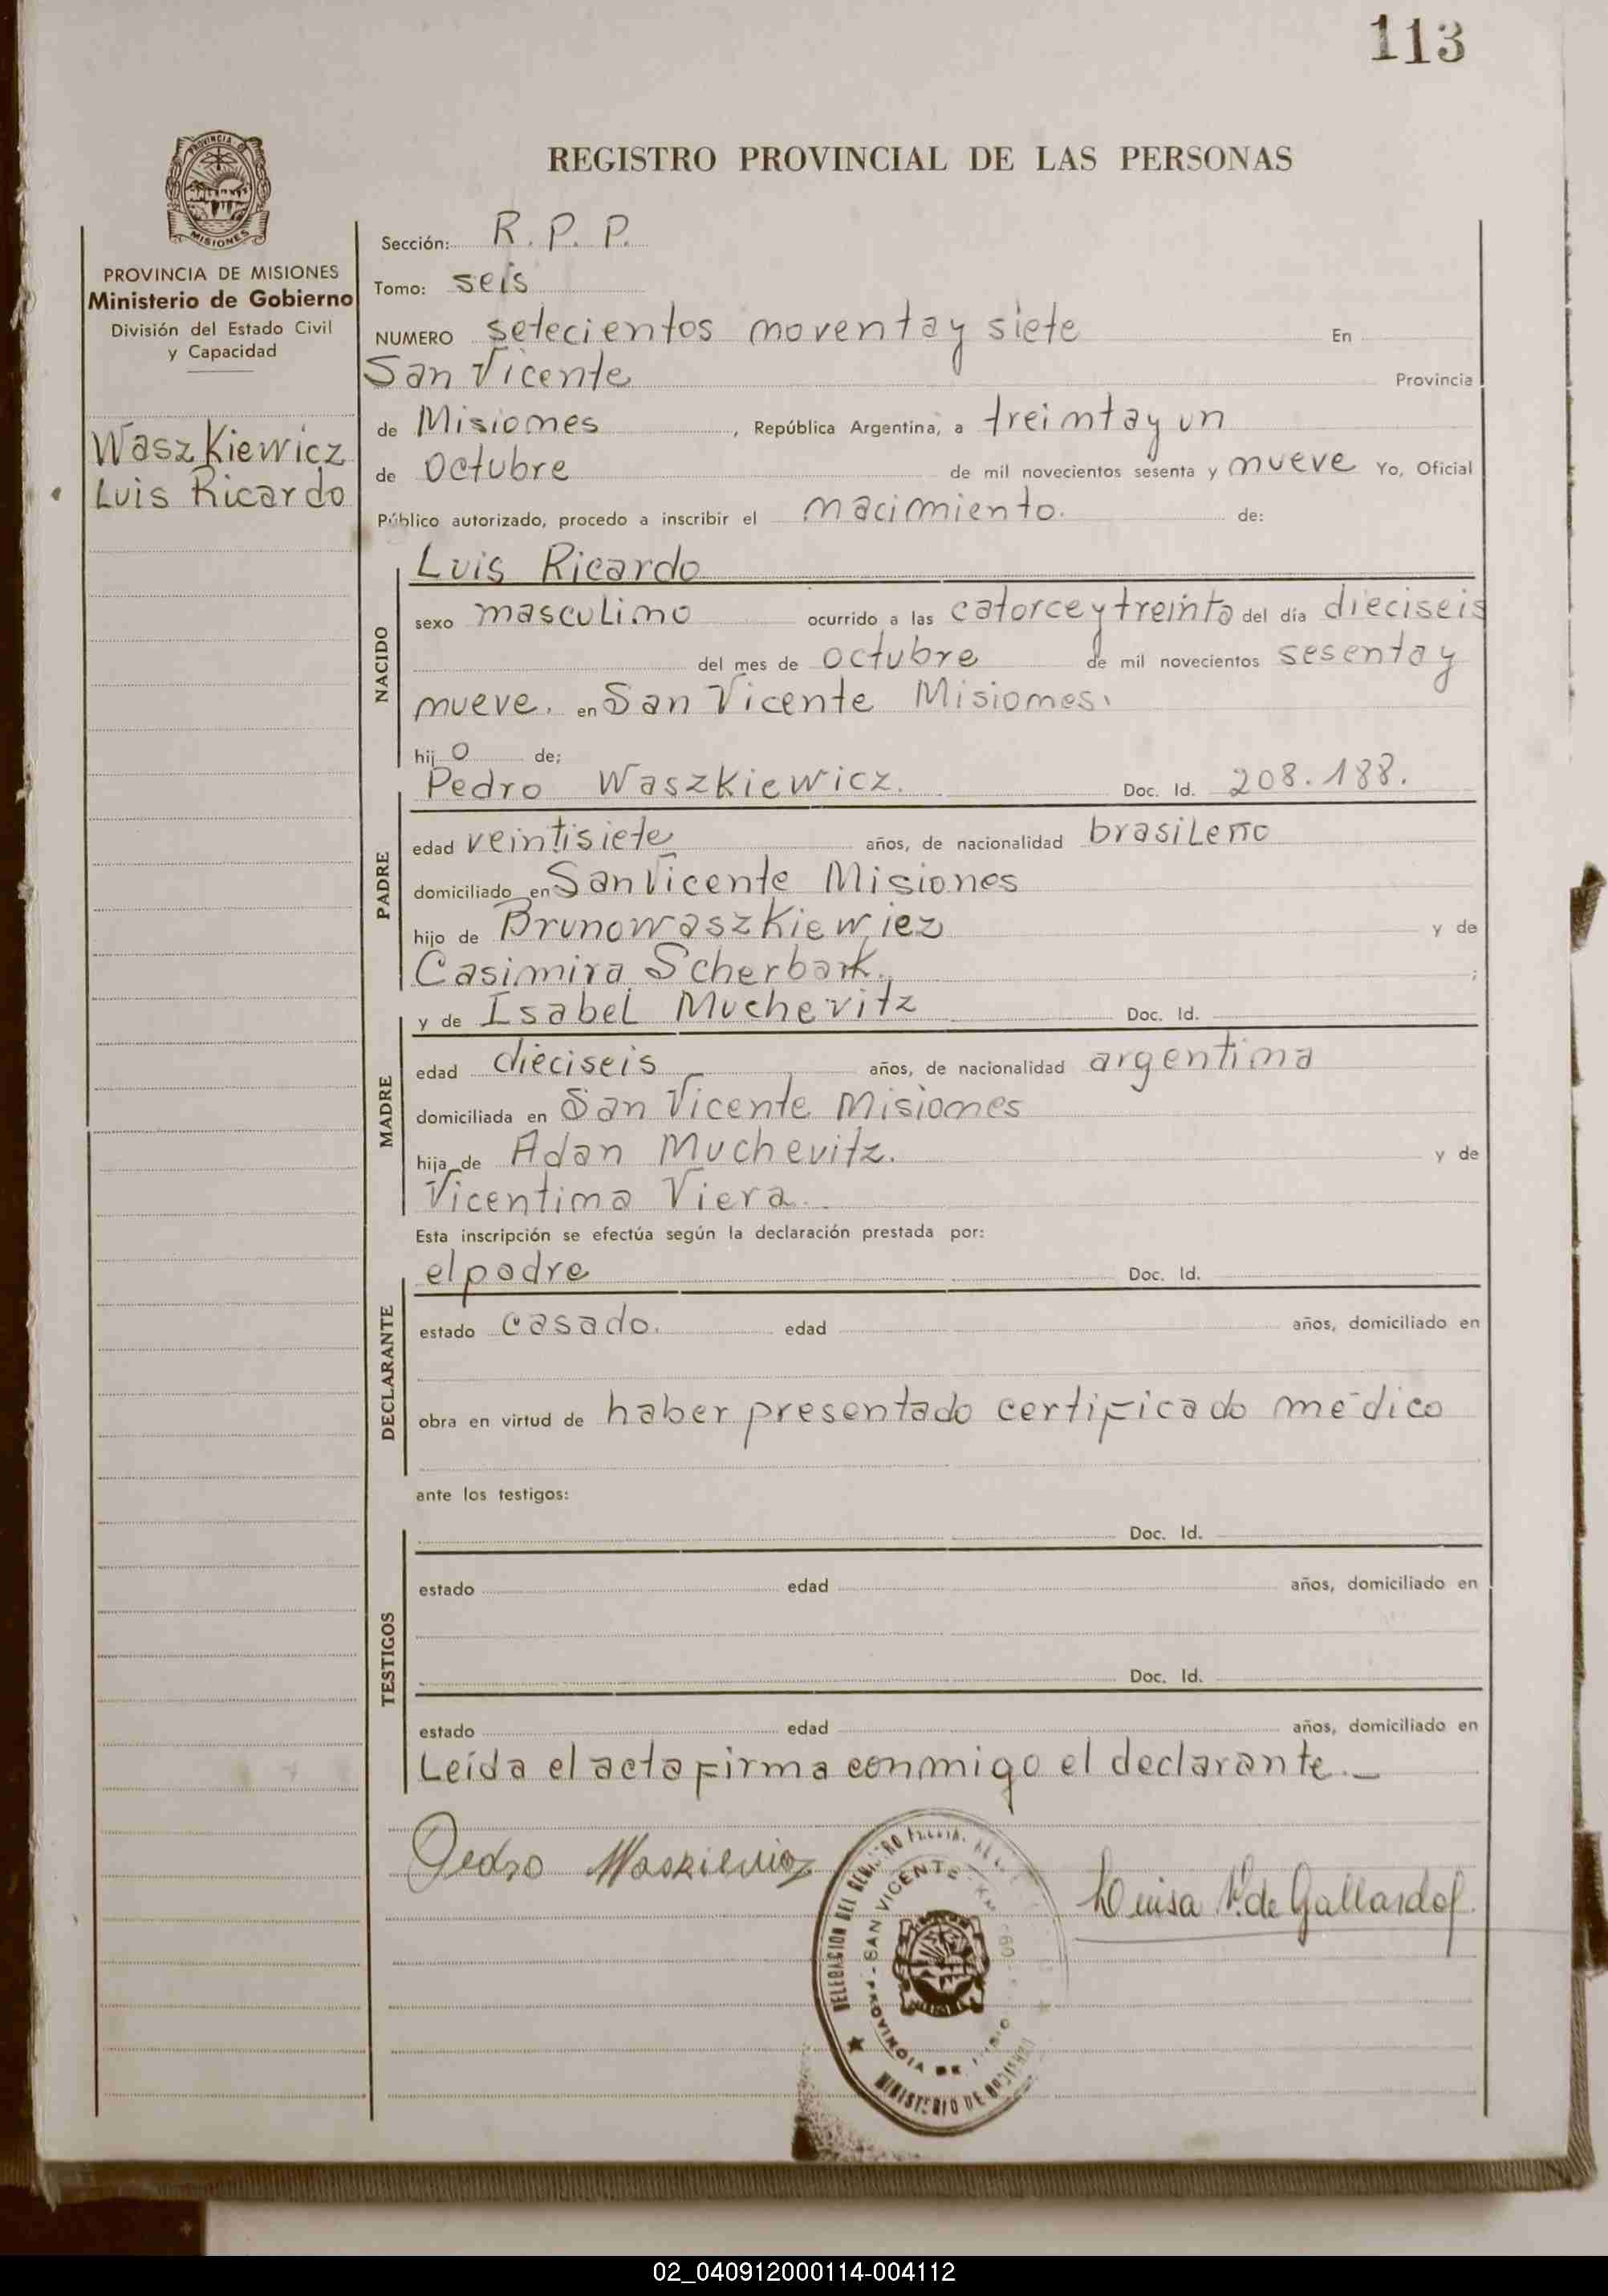 113
REGISTRO PROVINCIAL DE LAS PERSONAS
PROVINCIA DE MISIONES
Ministerio de Gobierno
División del Estado Civil
y Capacidad
Waszkiewicz
Luis Ricardo
Sección: R. P. P.
Tomo: seis
NUMERO setecientos noventa y siete En
San Vicente Provincia
de Misiones, República Argentina, a treinta y un
de octubre de mil novecientos sesenta y nueve Yo, Oficial
Público autorizado, procedo a inscribir el nacimiento. de:
NACIDO
Luis Ricardo
sexo masculino ocurrido a las catorce y treinta del día dieciseis
del mes de octubre de mil novecientos sesenta y
nueve. en San Vicente Misiones.
hijo de;
PADRE
Pedro Waszkiewicz. Doc. Id. 208.188.
edad veintisiete años, de nacionalidad brasileño
domiciliado en San Vicente Misiones
hijo de Bruno Waszkiewiez y de
Casimira Scherbark. ;
MADRE
y de Isabel Muchevitz Doc. Id.
edad dieciseis años, de nacionalidad argentina
domiciliada en San Vicente Misiones
hija de Adan Muchevitz. y de
Vicentina Viera.
Esta inscripción se efectúa según la declaración prestada por:
DECLARANTE
el padre Doc. Id.
estado casado. edad años, domiciliado en
obra en virtud de haber presentado certificado médico
ante los testigos:
TESTIGOS
Doc. Id.
estado edad años, domiciliado en
Doc. Id.
estado edad años, domiciliado en
Leída el acta firma conmigo el declarante.-
Pedro
Luisa V. de Gallardo
DELEGACION DEL REGISTRO
SAN VICENTE
PROVINCIA DE
MINISTERIO DE GOBIERNO
02_040912000114-004112